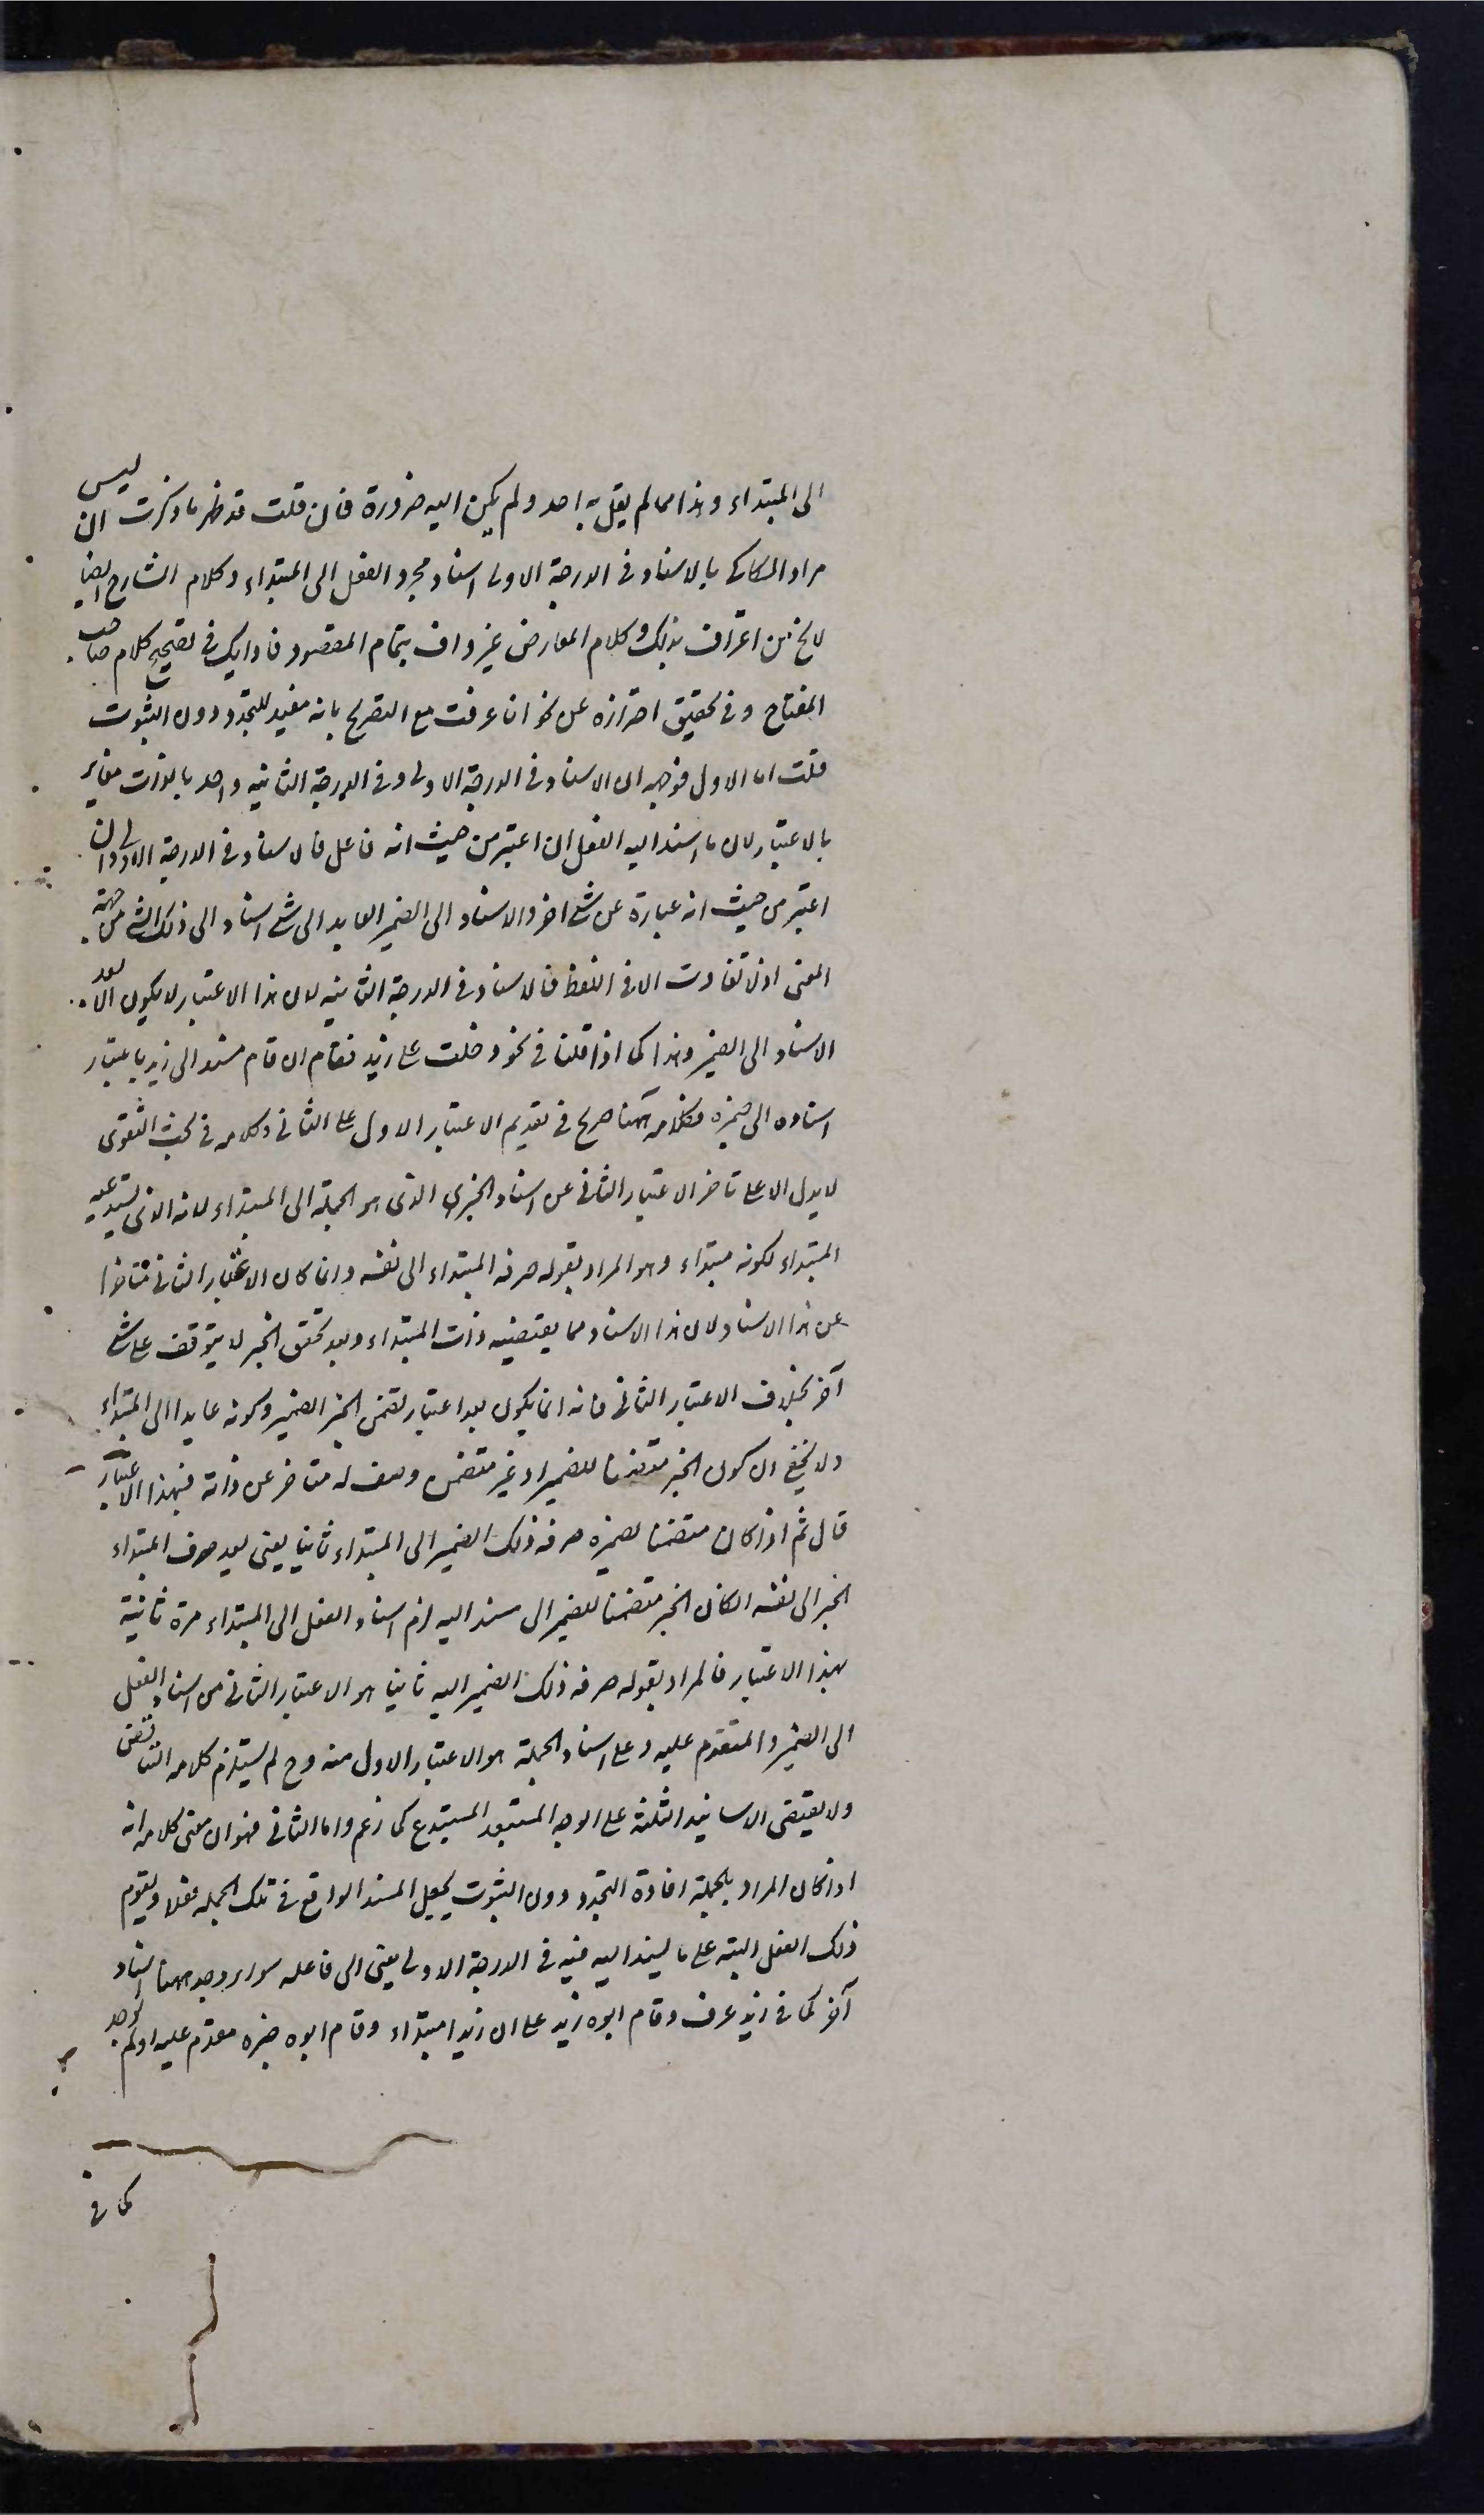 الى المبتداء وهذا مما لم يقل به احد ولم يكن اليه ضرورة فان قلت قد ظهر ما ذكرت ان ليس
مراد السكاكي بالاسناد في الدرجة الاولى اسناد مجرد الفعل الى المبتداء وكلام الشارح ايضا
لا يخ من اعتراف بذلك وكلام المعارض غير واف بتمام المقصود فما رايك في تصحيح كلام صاحب
المفتاح وفي تحقيق احترازه عن نحو انا عرفت مع التصريح بانه مفيد للتجدد دون الثبوت
قلت اما الاول فوجهه ان الاسناد في الدرجة الاولى وفي الدرجة الثانية واحد بالذات مغاير
بالاعتبار لان ما اسند اليه الفعل ان اعتبر من حيث انه فاعل فالاسناد في الدرجة الاولى وان
اعتبر من حيث انه عبارة عن شئ اخر والاسناد الى الضمير العايد الى شئ اسناد الى ذلك الشئ من جهة
المعنى اذ لا تفاوت الا في اللفظ فالاسناد في الدرجة الثانية لان هذا الاعتبار لا يكون الا بعد
الاسناد الى الضمير وهذا كما اذا قلنا في نحو دخلت على زيد فقام ان قام مسند الى زيد باعتبار
اسناده الى ضميره فكلامه ههنا صريح في تقديم الاعتبار الاول على الثاني وكلامه في بحث التقوى
لا يدل الا على تاخر الاعتبار الثاني عن اسناد الخبر الذي هو الجملة الى المبتداء لانه الذي يستدعيه
المبتداء لكونه مبتداء وهو المراد بقوله صرفه المبتداء الى نفسه وانما كان الاعتبار الثاني متاخرا
عن هذا الاسناد لان هذا الاسناد مما يقتضيه ذات المبتداء وبعد تحقق الخبر لا يتوقف على شئ
آخر بخلاف الاعتبار الثاني فانه انما يكون بعد اعتبار تضمن الخبر الضمير وكونه عايدا الى المبتداء
ولا يخفى ان كون الخبر متضمنا للضمير او غير متضمن وصف له متاخر عن ذاته فبهذا الاعتبار
قال ثم اذا كان متضمنا لضميره صرفه ذلك الضمير الى المبتداء ثانيا يعنى بعد صرف المبتداء
الخبر الى نفسه ان كان الخبر متضمنا للضمير الى مسند اليه لزم اسناد الفعل الى المبتداء مرة ثانية
بهذا الاعتبار فالمراد بقوله صرفه ذلك الضمير اليه ثانيا هو الاعتبار الثاني من اسناد الفعل
الى الضمير والمتقدم عليه وعلى اسناد الجملة هو الاعتبار الاول منه وح لم يستلزم كلامه التناقض
ولا يقتضى الاسانيد الثلثة على الوجه المستبعد المستبدع كما زعم واما الثاني فهو ان معنى كلامه انه
اذا كان المراد بالجملة افادة التجدد دون الثبوت يجعل المسند الواقع في تلك الجملة فعلا ويقوم
ذلك الفعل البتة على ما يسند اليه فيه في الدرجة الاولى يعنى الى فاعله سواء وجد ههنا اسناد
آخر كما في زيد عرف وقام ابوه زيد على ان زيدا مبتداء وقام ابوه خبره مقدم عليه او لم يوجد
كما في